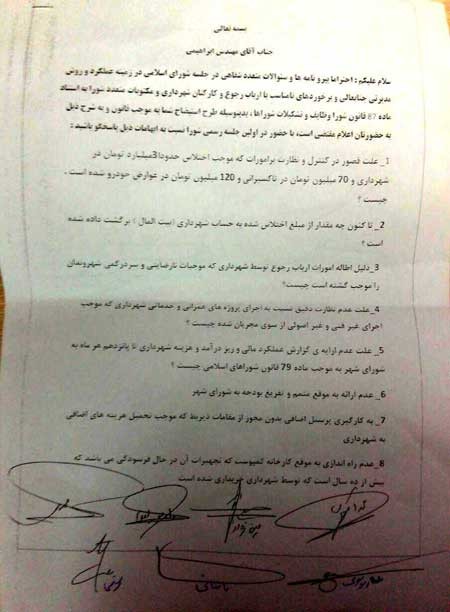 بسمه تعالی
جناب آقای مهندس ابراهیمی
سلام علیکم : احتراما پیرو نامه ها و سئوالات متعدد شفاهی در جلسه شورای اسلامی در زمینه عملکرد و روش
مدیرتی جنابعالی و برخوردهای نامناسب با ارباب رجوع و کارکنان شهرداری و مکتوبات متعدد شورا به استناد
ماده 87 قانون شورا وظایف و تشکیلات شوراها ، بدینوسیله طرح استیضاح شما به موجب قانون و به شرح ذیل
به حضورتان اعلام مقتضی است، با حضور در اولین جلسه رسمی شورا نسبت به اتهامات ذیل پاسخگو باشید :
1_ علت قصور در کنترل و نظارت برامورات که موجب اختلاس حدودا3میلیارد تومان در
شهرداری و 70 میلیون تومان در تاکسیرانی و 120 میلیون تومان در عوارض خودرو شده است ،
چیست ؟
2_ تا کنون چه مقدار از مبلغ اختلاس شده به حساب شهرداری (بیت المال ) برگشت داده شده
است ؟
3_دلیل اطاله امورات ارباب رجوع توسط شهرداری که موجبات نارضایتی و سردرگمی شهروندان
را موجب گشته است چیست؟
4_علت عدم نظارت دقیق نسبت به اجرای پروژه های عمرانی و خدماتی شهرداری که موجب
اجرای غیر فنی و غیر اصولی از سوی مجریان شده چیست ؟
5_ علت عدم ارایه ی گزارش عملکرد مالی و ریز درآمد و هزینه شهرداری تا پانزدهم هر ماه به
شورای شهر به موجب ماده 79 قانون شوراهای اسلامی چیست ؟
6_ عدم ارائه به موقع متمم و تفریغ بودجه به شورای شهر
7_ به کارگیری پرسنل اضافی بدون مجوز از مقامات ذیربط که موجب تحمیل هزینه های اضافی
به شهرداری
8_عدم راه اندازی به موقع کارخانه کمپوست که تجهیزات آن در حال فرسودگی می باشد که
بیش از ده سال است که توسط شهرداری خریداری شده است